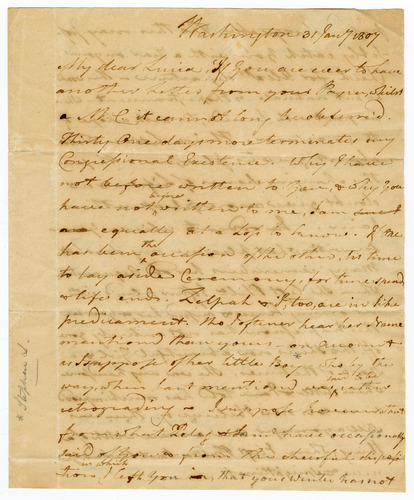 Washington 31 Jany 1807
My dear Luisa, If You are ever to have
another letter from your Papa, whilst
a M.C. it cannot long be deferred.
Thirty One days more terminates my
Congressional Existence. Why I have
not before written to You, & Why You
have not before written to me, I am sure I
are equally at a loss to know. If
has been the occasion of the others, tis time
to lay aside Ceremony, for time speeds
& life ends. Zilpah & I, too, are in like
predicament. Tho I oftener hear her Name
mentioned than yours, on account
as I suppose of her little Boy * who by the
way, when last mentioned was said to be rather
retrograding. I suppose however that
from what Zilpah & have occasionally
said of Yours from the cheerful disposi
tion, in which I left You in, that your Winter has not
* Stephen L.